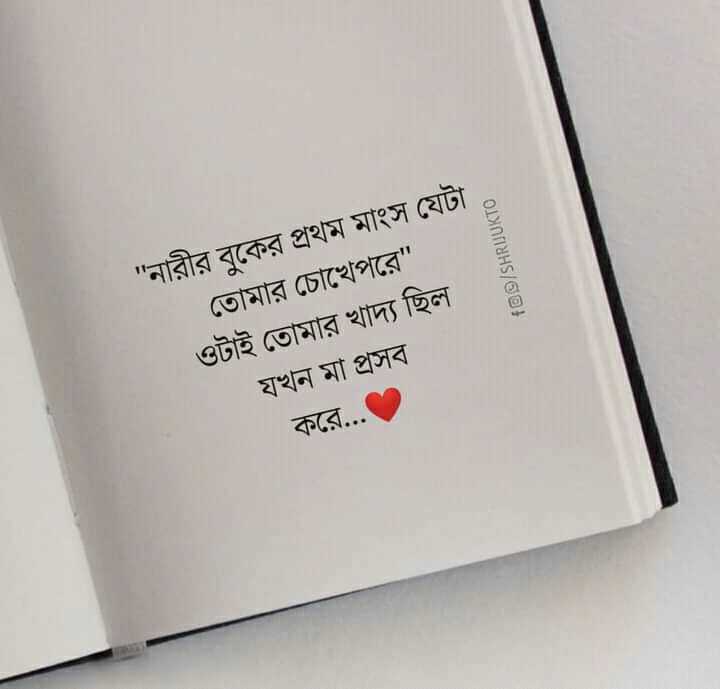 "নারীর বুকের প্রথম মাংস যেটা
তোমার চোখেপরে"
ওটাই তোমার খাদ্য ছিল
যখন মা প্রসব
করে...❤️
/SHRIJUKTO